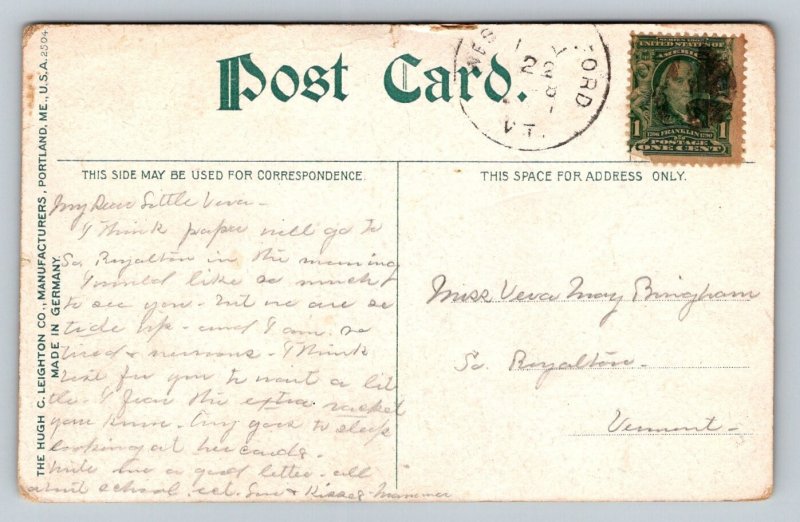 Post Card.
THE HUGH C. LEIGHTON CO., MANUFACTURERS, PORTLAND, ME., U.S.A. 2504
MADE IN GERMANY.
UNITED STATES OF
AMERICA
1 1706 FRANKLIN 1790 1
POSTAGE
ONE CENT
THIS SIDE MAY BE USED FOR CORRESPONDENCE.
My Dear Little Veva -
I think papa will go to
So. Royalton in the morning
I would like so much
to see you - but we are so
up - and I am so
tired & nervous - I think
best for you to wait a lit
tle. I fear the extra racket
you know. goes to sleep
looking at her cards.
Write me a good letter - all
about school. ect. Love & Kisses - Mamma
THIS SPACE FOR ADDRESS ONLY.
Miss Veva May Bingham
So. Royalton -
Vermont -